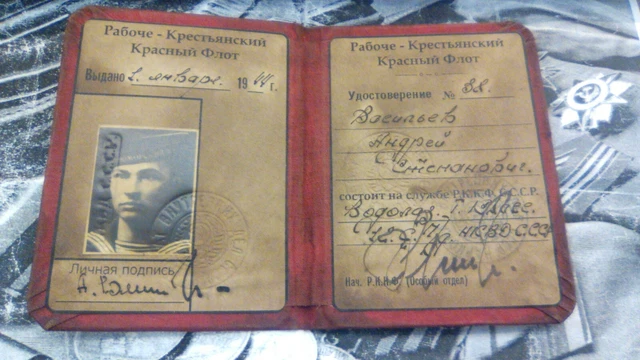 Рабоче - Крестьянский
Красный Флот
Выдано 2 января 19 г.
Личная подпись
Рабоче - Крестьянский
Красный Флот
Удостоверение №
Васильев
Андрей
Степанович.
состоит на службе Р.К.К.Ф. С.С.С.Р.
Водолаз 1
НКВД СССР
Нач. Р.К.К.Ф. (Особый отдел)